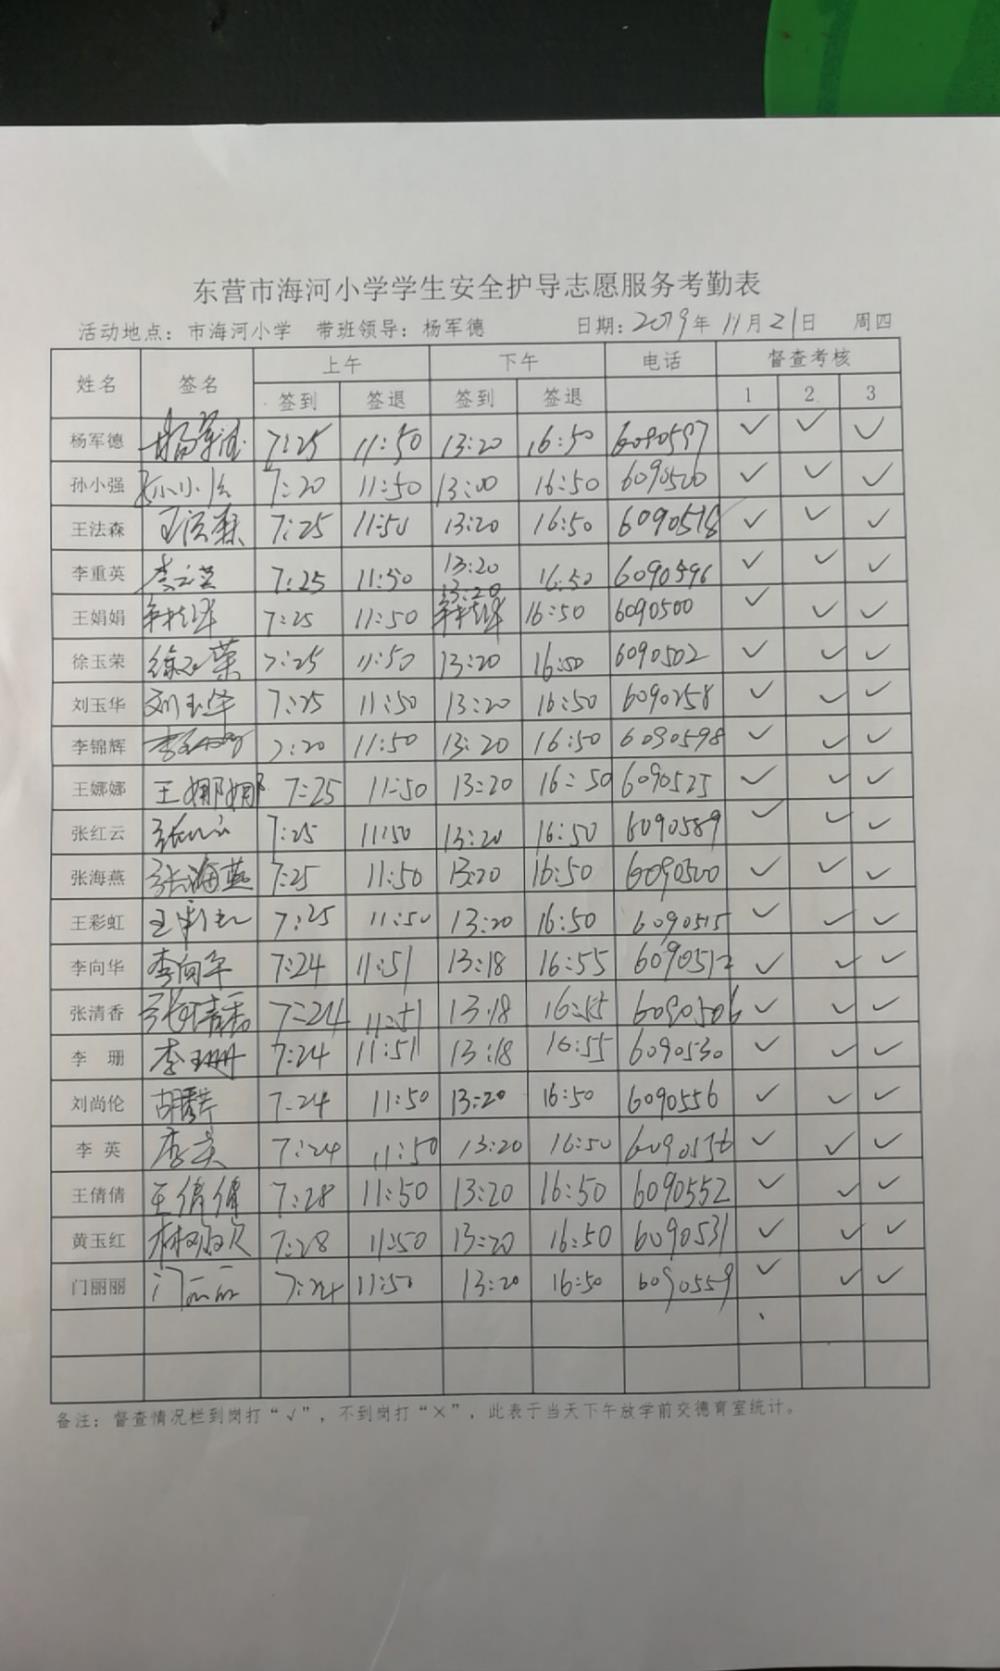 东营市海河小学学生安全护导志愿服务考勤表
活动地点：市海河小学 带班领导：杨军德 日期：2019年11月21日 周四
姓名 签名 上午 下午 电话 督查考核
签到 签退 签到 签退 1 2 3
杨军德 杨军德 7:25 11:50 13:20 16:50 6090597 ✓ ✓ ✓
孙小强 7:20 11:50 13:00 16:50 6090520 ✓ ✓ ✓
王法森 王法森 7:25 11:50 13:20 16:50 6090518 ✓ ✓ ✓
李重英 7:25 11:50 13:20 16:50 6090596 ✓ ✓ ✓
王娟娟 7:25 11:50 13:20 16:50 6090500 ✓ ✓ ✓
徐玉荣 徐玉荣 7:25 11:50 13:20 16:50 6090502 ✓ ✓ ✓
刘玉华 刘玉华 7:25 11:50 13:20 16:50 6090258 ✓ ✓ ✓
李锦辉 7:20 11:50 13:20 16:50 6090598 ✓ ✓ ✓
王娜娜 王娜娜 7:25 11:50 13:20 16:50 6090525 ✓ ✓ ✓
张红云 张红云 7:25 11:50 13:20 16:50 6090589 ✓ ✓ ✓
张海燕 张海燕 7:25 11:50 13:20 16:50 6090500 ✓ ✓ ✓
王彩虹 王彩虹 7:25 11:50 13:20 16:50 6090515 ✓ ✓ ✓
李向华 李向华 7:24 11:51 13:18 16:55 6090512 ✓ ✓ ✓
张清香 张清香 7:24 11:51 13:18 16:55 6090506 ✓ ✓ ✓
李 珊 李珊 7:24 11:51 13:18 16:55 6090530 ✓ ✓ ✓
刘尚伦 7:24 11:50 13:20 16:50 6090556 ✓ ✓ ✓
李 英 李英 7:24 11:50 13:20 16:50 6090536 ✓ ✓ ✓
王倩倩 王倩倩 7:28 11:50 13:20 16:50 6090552 ✓ ✓ ✓
黄玉红 7:28 11:50 13:20 16:50 6090531 ✓ ✓ ✓
门丽丽 门丽丽 7:24 11:50 13:20 16:50 6090559 ✓ ✓ ✓
备注：督查情况栏到岗打“√”，不到岗打“×”，此表于当天下午放学前交德育室统计。